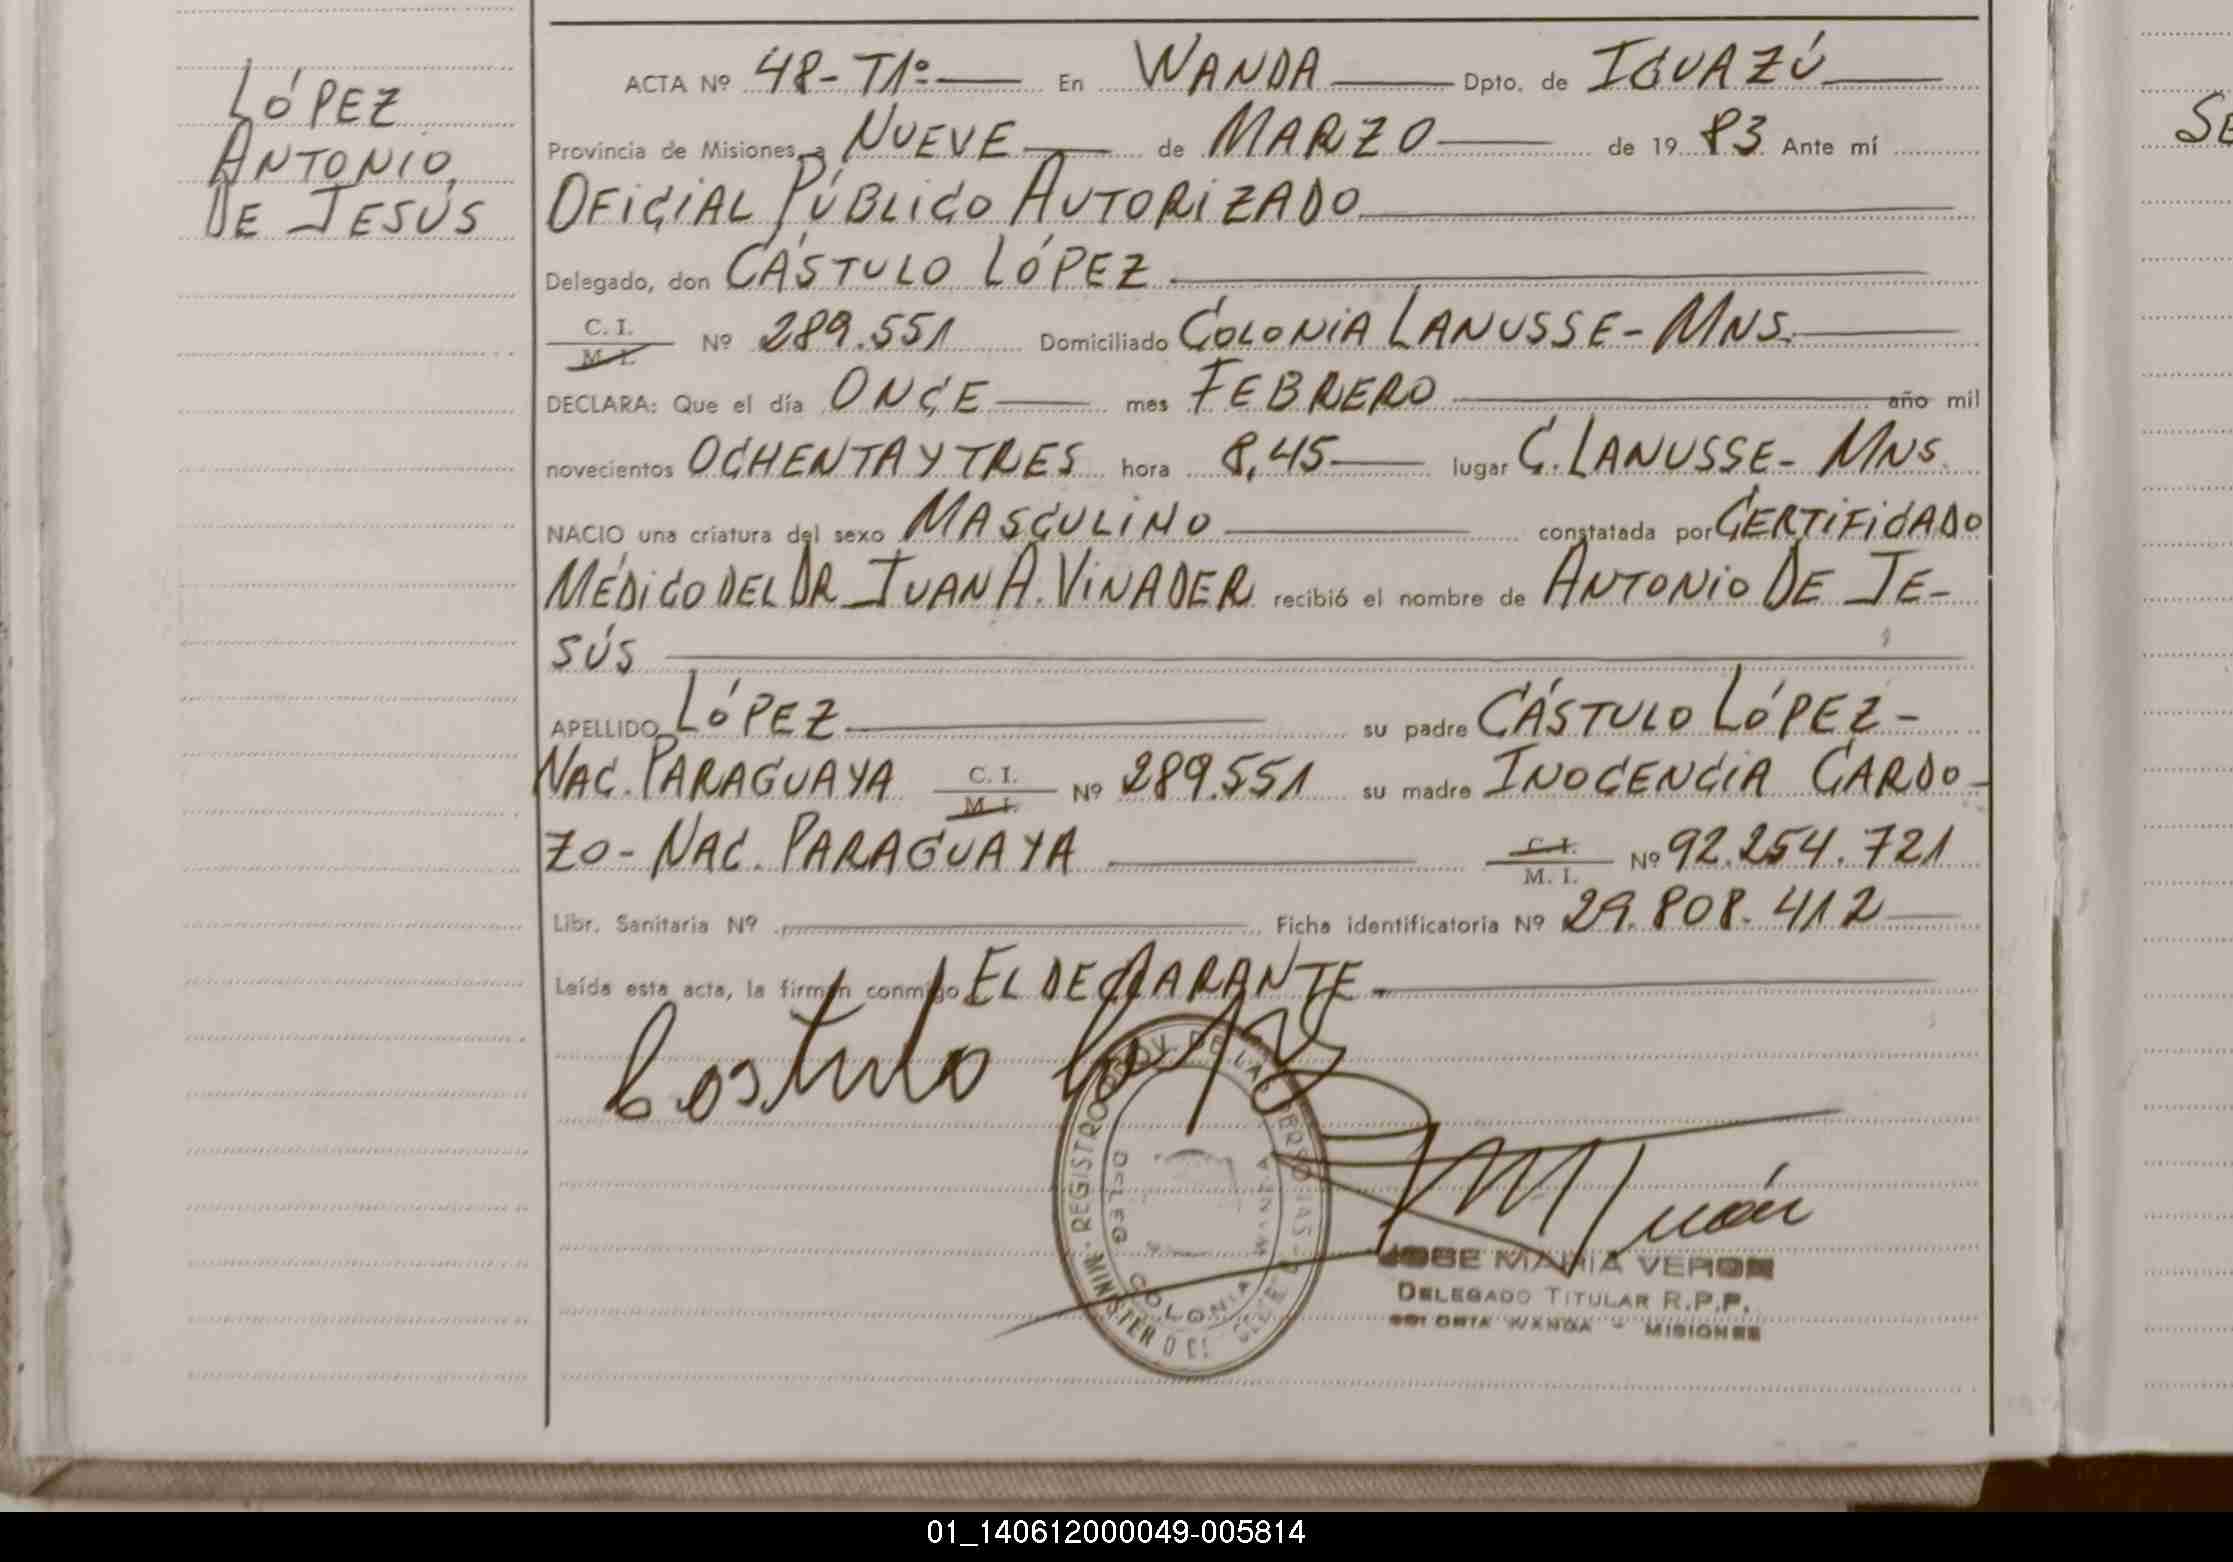 LÓPEZ
ANTONIO
DE JESÚS
ACTA Nº 48-T1º En WANDA Dpto. de IGUAZÚ
Provincia de Misiones, a NUEVE de MARZO de 1983 Ante mí
OFICIAL PÚBLICO AUTORIZADO
Delegado, don CÁSTULO LÓPEZ
C. I.
M. I. Nº 289.551 Domiciliado COLONIA LANUSSE - MNS.
DECLARA: Que el día ONCE mes FEBRERO año mil
novecientos OCHENTA Y TRES hora 8,45 lugar C. LANUSSE - MNS.
NACIO una criatura del sexo MASCULINO constatada por CERTIFICADO
MÉDICO DEL DR JUAN A. VINADER recibió el nombre de ANTONIO DE JE-
SÚS
APELLIDO LÓPEZ su padre CÁSTULO LÓPEZ -
NAC. PARAGUAYA C. I.
M. I. Nº 289.551 su madre INOCENCIA CARDO-
ZO - NAC. PARAGUAYA C. I.
M. I. Nº 92.254.721
Libr. Sanitaria Nº Ficha identificatoria Nº 29.808.412
Leída esta acta, la firman conmigo EL DECLARANTE
Castulo López
REGISTRO PROV. DE LAS PERSONAS
DELEG
COLONIA WANDA
JOSE MARIA VERON
DELEGADO TITULAR R.P.P.
COLONIA WANDA - MISIONES
SE
01_140612000049-005814